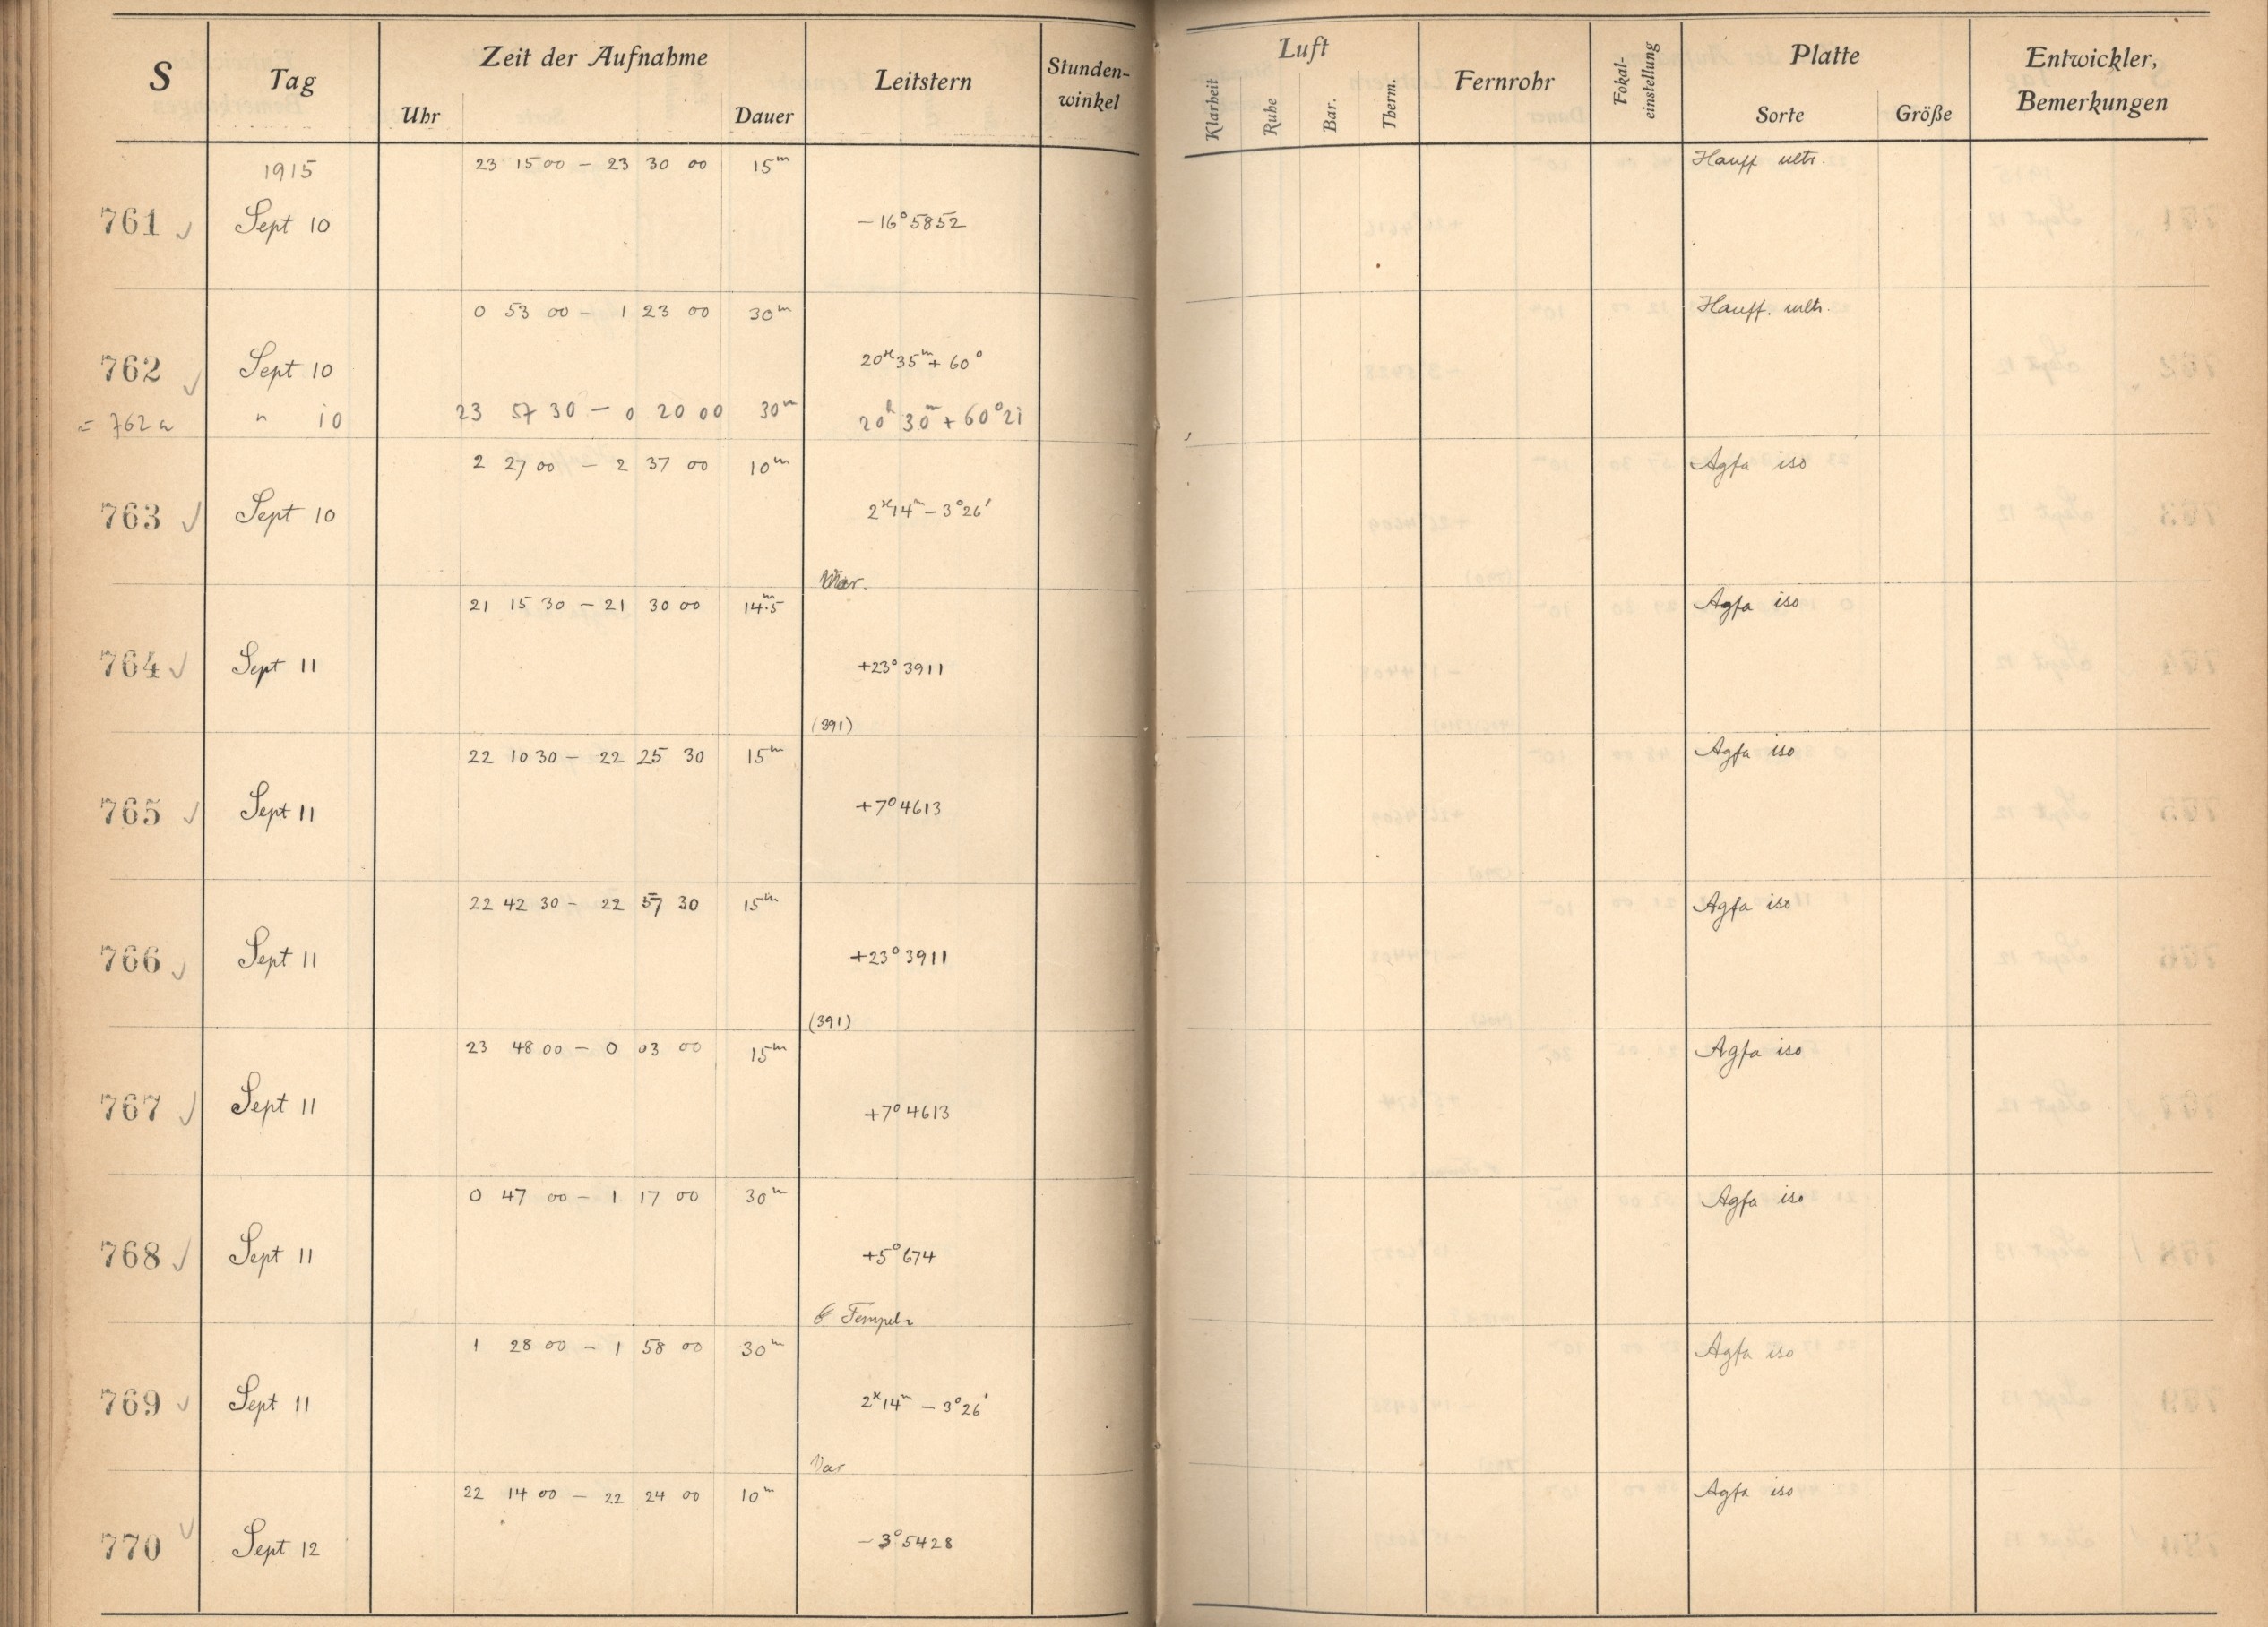 S Tag Zeit der Aufnahme Leitstern Stunden-winkel Luft Fernrohr Fokal-einstellung Platte Entwickler, Bemerkungen
Uhr Dauer Klarheit Ruhe Bar. Therm. Sorte Größe
1915 23 15 00 – 23 30 00 15m Hauff ultr.
761 Sept 10 –16° 5852
0 53 00 – 1 23 00 30m Hauff. ultr.
762 Sept 10 20h 35m + 60°
= 762a " 10 23 57 30 – 0 20 00 30m 20h 30m + 60° 21
2 27 00 – 2 37 00 10m Agfa iso
763 Sept 10 2h 14m – 3° 26'
Var.
21 15 30 – 21 30 00 14m.5 Agfa iso
764 Sept 11 +23° 3911
(391)
22 10 30 – 22 25 30 15m Agfa iso
765 Sept 11 +7° 4613
22 42 30 – 22 57 30 15m Agfa iso
766 Sept 11 +23° 3911
(391)
23 48 00 – 0 03 00 15m Agfa iso
767 Sept 11 +7° 4613
0 47 00 – 1 17 00 30m Agfa iso
768 Sept 11 +5° 674
Tempel2
1 28 00 – 1 58 00 30m Agfa iso
769 Sept 11 2h 14m – 3° 26'
Var
22 14 00 – 22 24 00 10m Agfa iso
770 Sept 12 –3° 5428